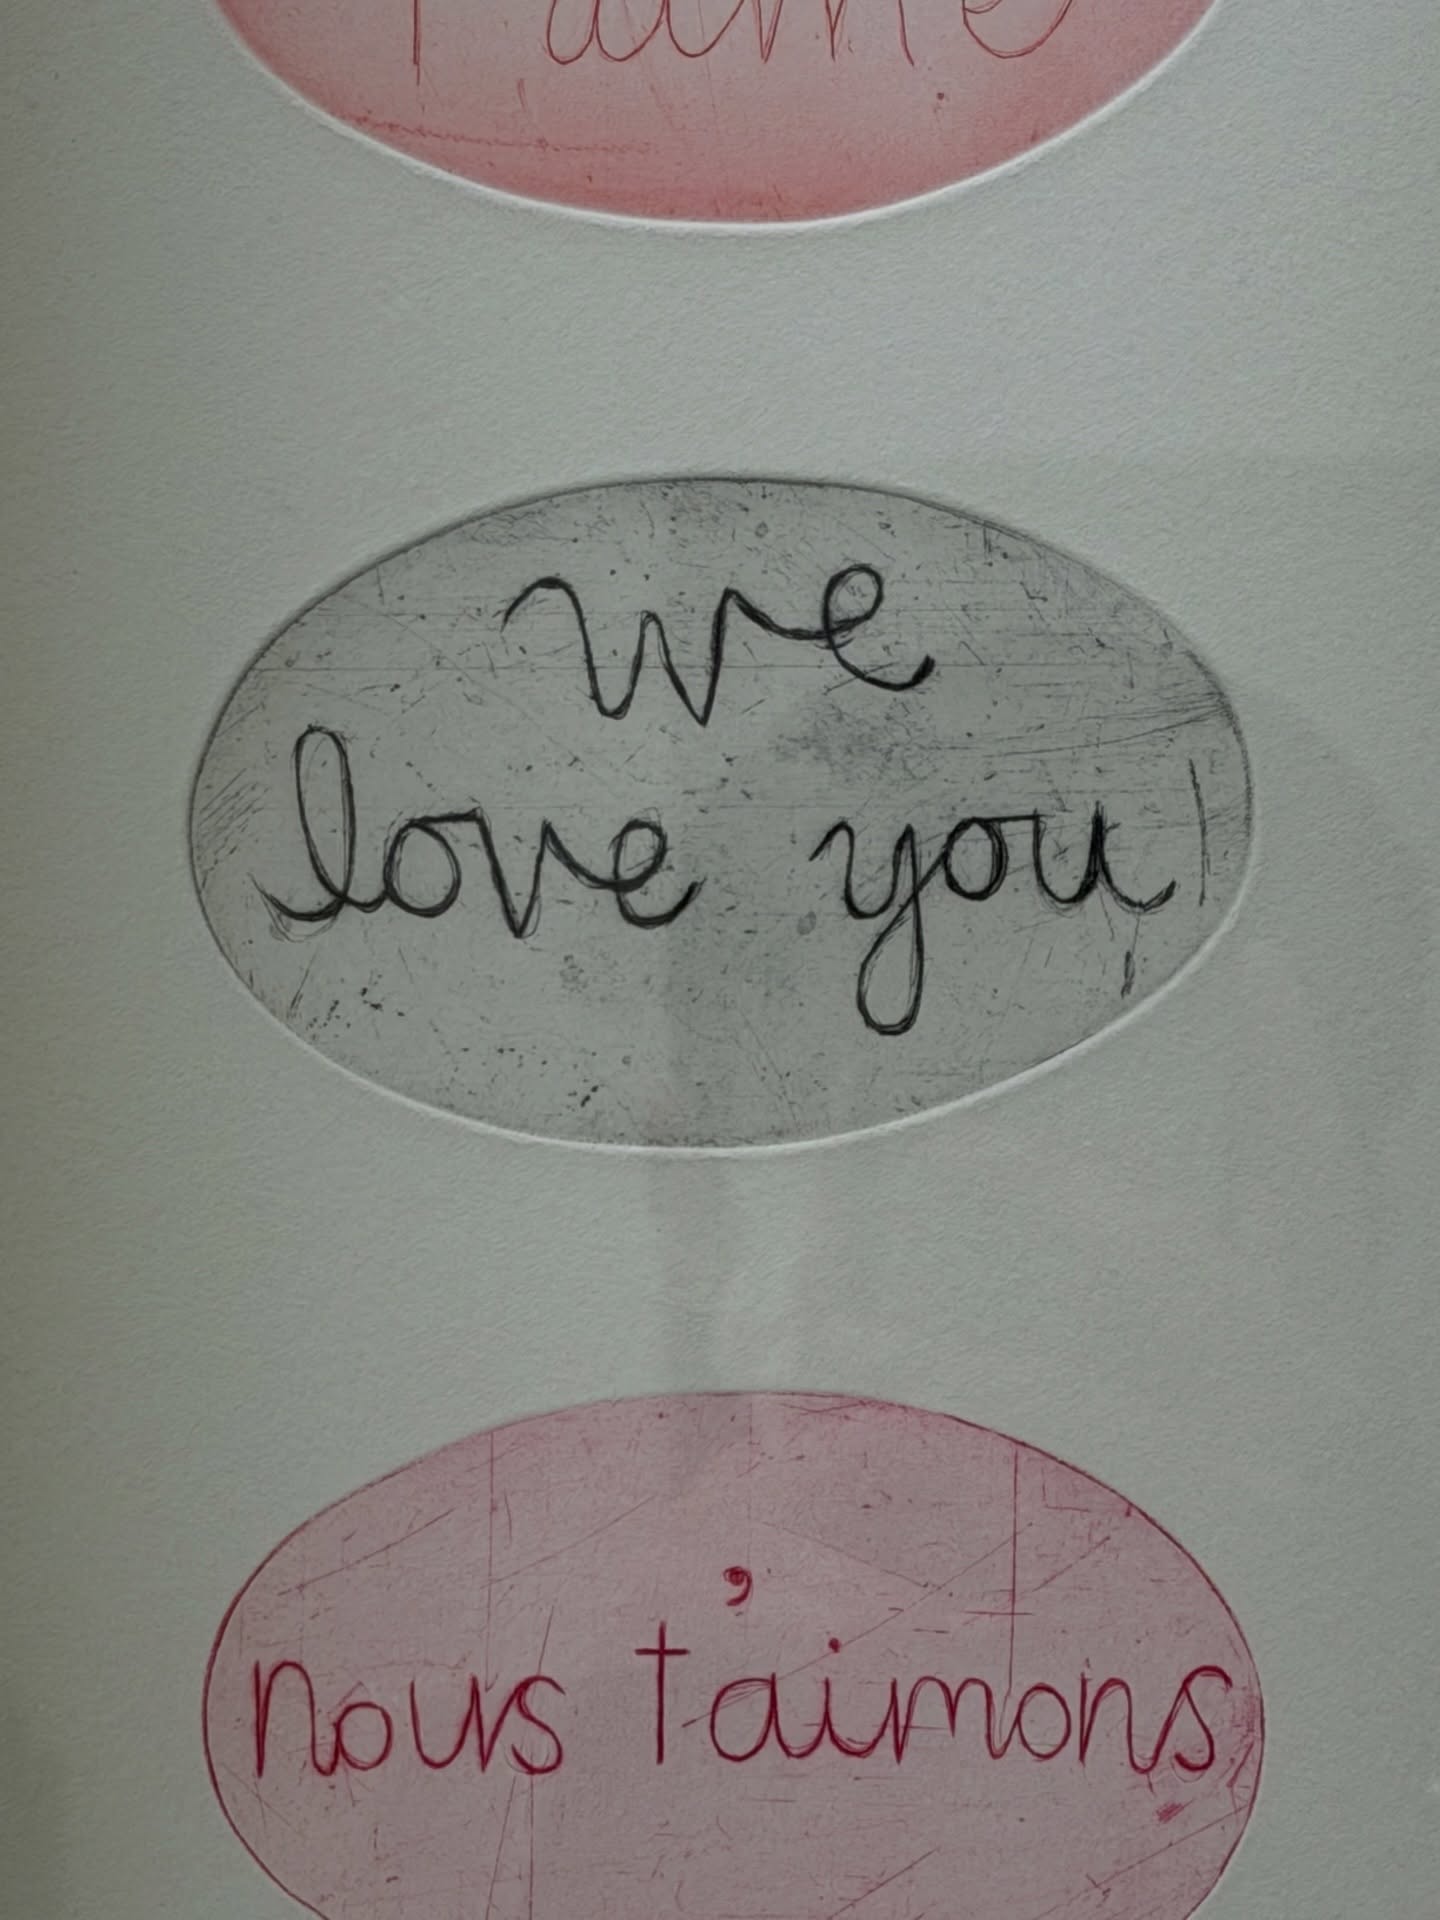 t'aime
we
love you!
nous t'aimons